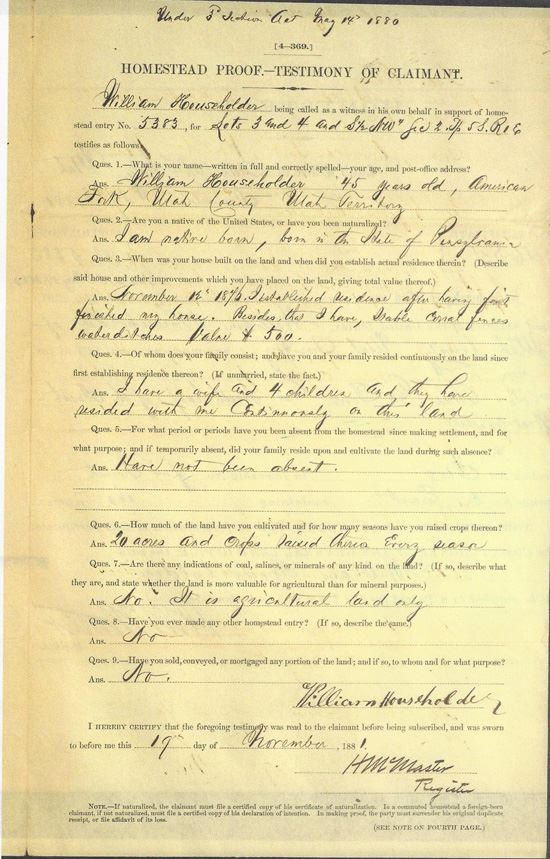 Under 3d Section Act May 14th 1880
[4—369.]
HOMESTEAD PROOF.—TESTIMONY OF CLAIMANT.
William Householder being called as a witness in his own behalf in support of home-
stead entry No. 5383, for Lots 3 and 4 and S½ NW¼ Sec 2. Tp 5 S. R 1 E
testifies as follows:
Ques. 1.—What is your name—written in full and correctly spelled—your age, and post-office address?
Ans. William Householder 45 years old, American
Fork, Utah County Utah Territory
Ques. 2.—Are you a native of the United States, or have you been naturalized?
Ans. I am native born, born in the State of Pensylvania
Ques. 3.—When was your house built on the land and when did you establish actual residence therein? (Describe
said house and other improvements which you have placed on the land, giving total value thereof.)
Ans. November I established residence after having first
finished my house. Besides that I have, Stable Corral fences
water ditches Value $ 500.
Ques. 4.—Of whom does your family consist; and have you and your family resided continuously on the land since
first establishing residence thereon? (If unmarried, state the fact.)
Ans. I have a wife and 4 children and they have
resided with me Continuously on this land
Ques. 5.—For what period or periods have you been absent from the homestead since making settlement, and for
what purpose; and if temporarily absent, did your family reside upon and cultivate the land during such absence?
Ans. Have not been absent.
Ques. 6.—How much of the land have you cultivated and for how many seasons have you raised crops thereon?
Ans. 20 acres and crops raised thereon Every season
Ques. 7.—Are there any indications of coal, salines, or minerals of any kind on the land? (If so, describe what
they are, and state whether the land is more valuable for agricultural than for mineral purposes.)
Ans. No. It is agricultural land only
Ques. 8.—Have you ever made any other homestead entry? (If so, describe the same.)
Ans. No
Ques. 9.—Have you sold, conveyed, or mortgaged any portion of the land; and if so, to whom and for what purpose?
Ans. No.
William Householder
I HEREBY CERTIFY that the foregoing testimony was read to the claimant before being subscribed, and was sworn
to before me this 19th day of November, 1881.
H McMaster
Register
NOTE.—If naturalized, the claimant must file a certified copy of his certificate of naturalization. In a commuted homestead a foreign-born
claimant, if not naturalized, must file a certified copy of his declaration of intention. In making proof, the party must surrender his original duplicate
receipt, or file affidavit of its loss.
(SEE NOTE ON FOURTH PAGE.)